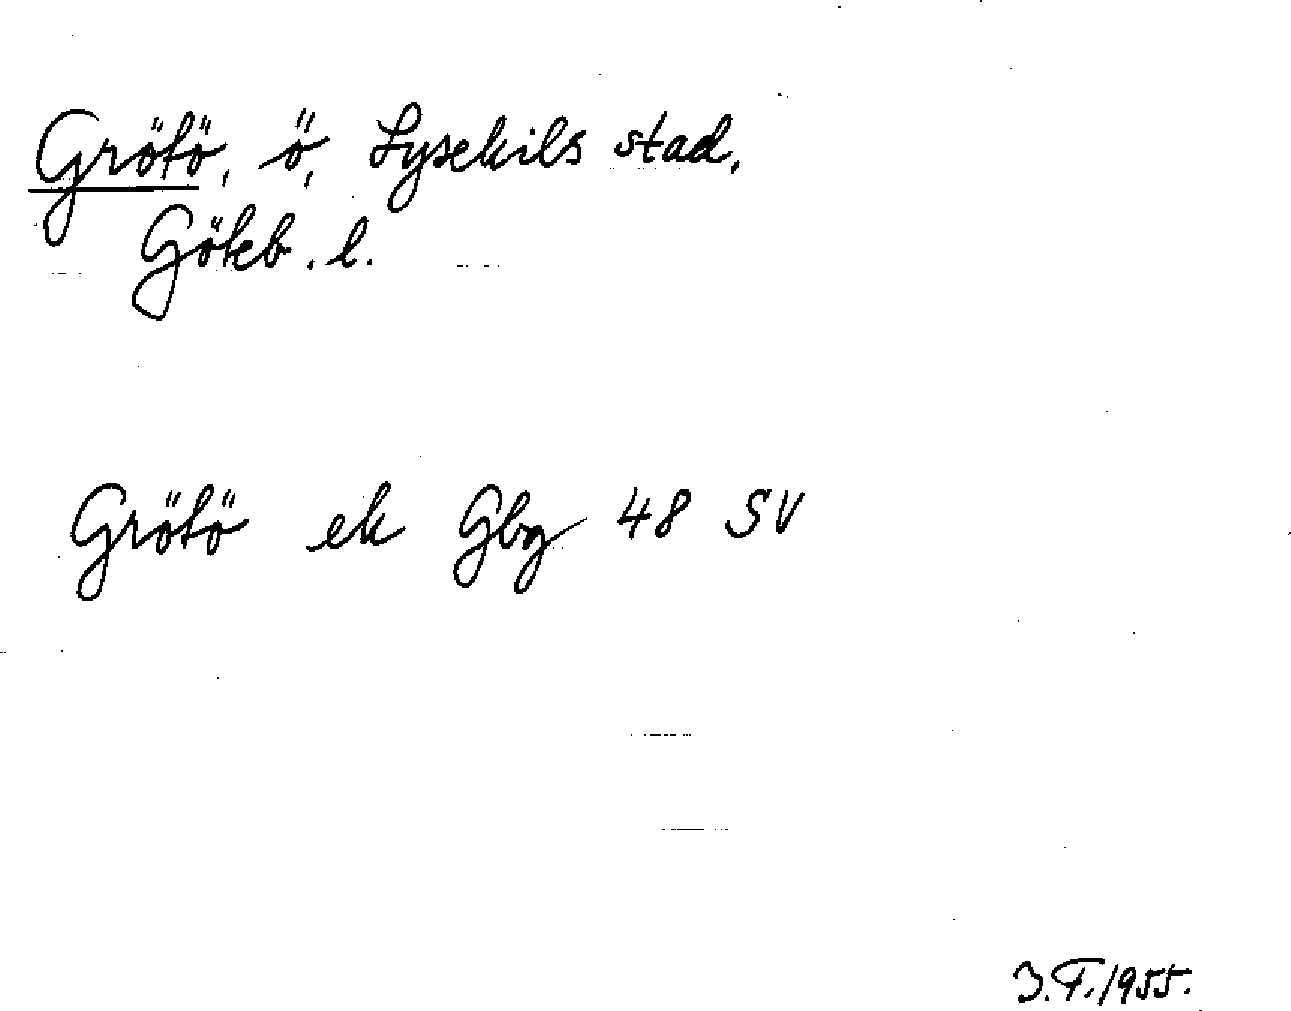 Grötö, ö, Lysekils stad,
Göteb. l.
Grötö ek Gbg 48 SV
J.F. 1955.